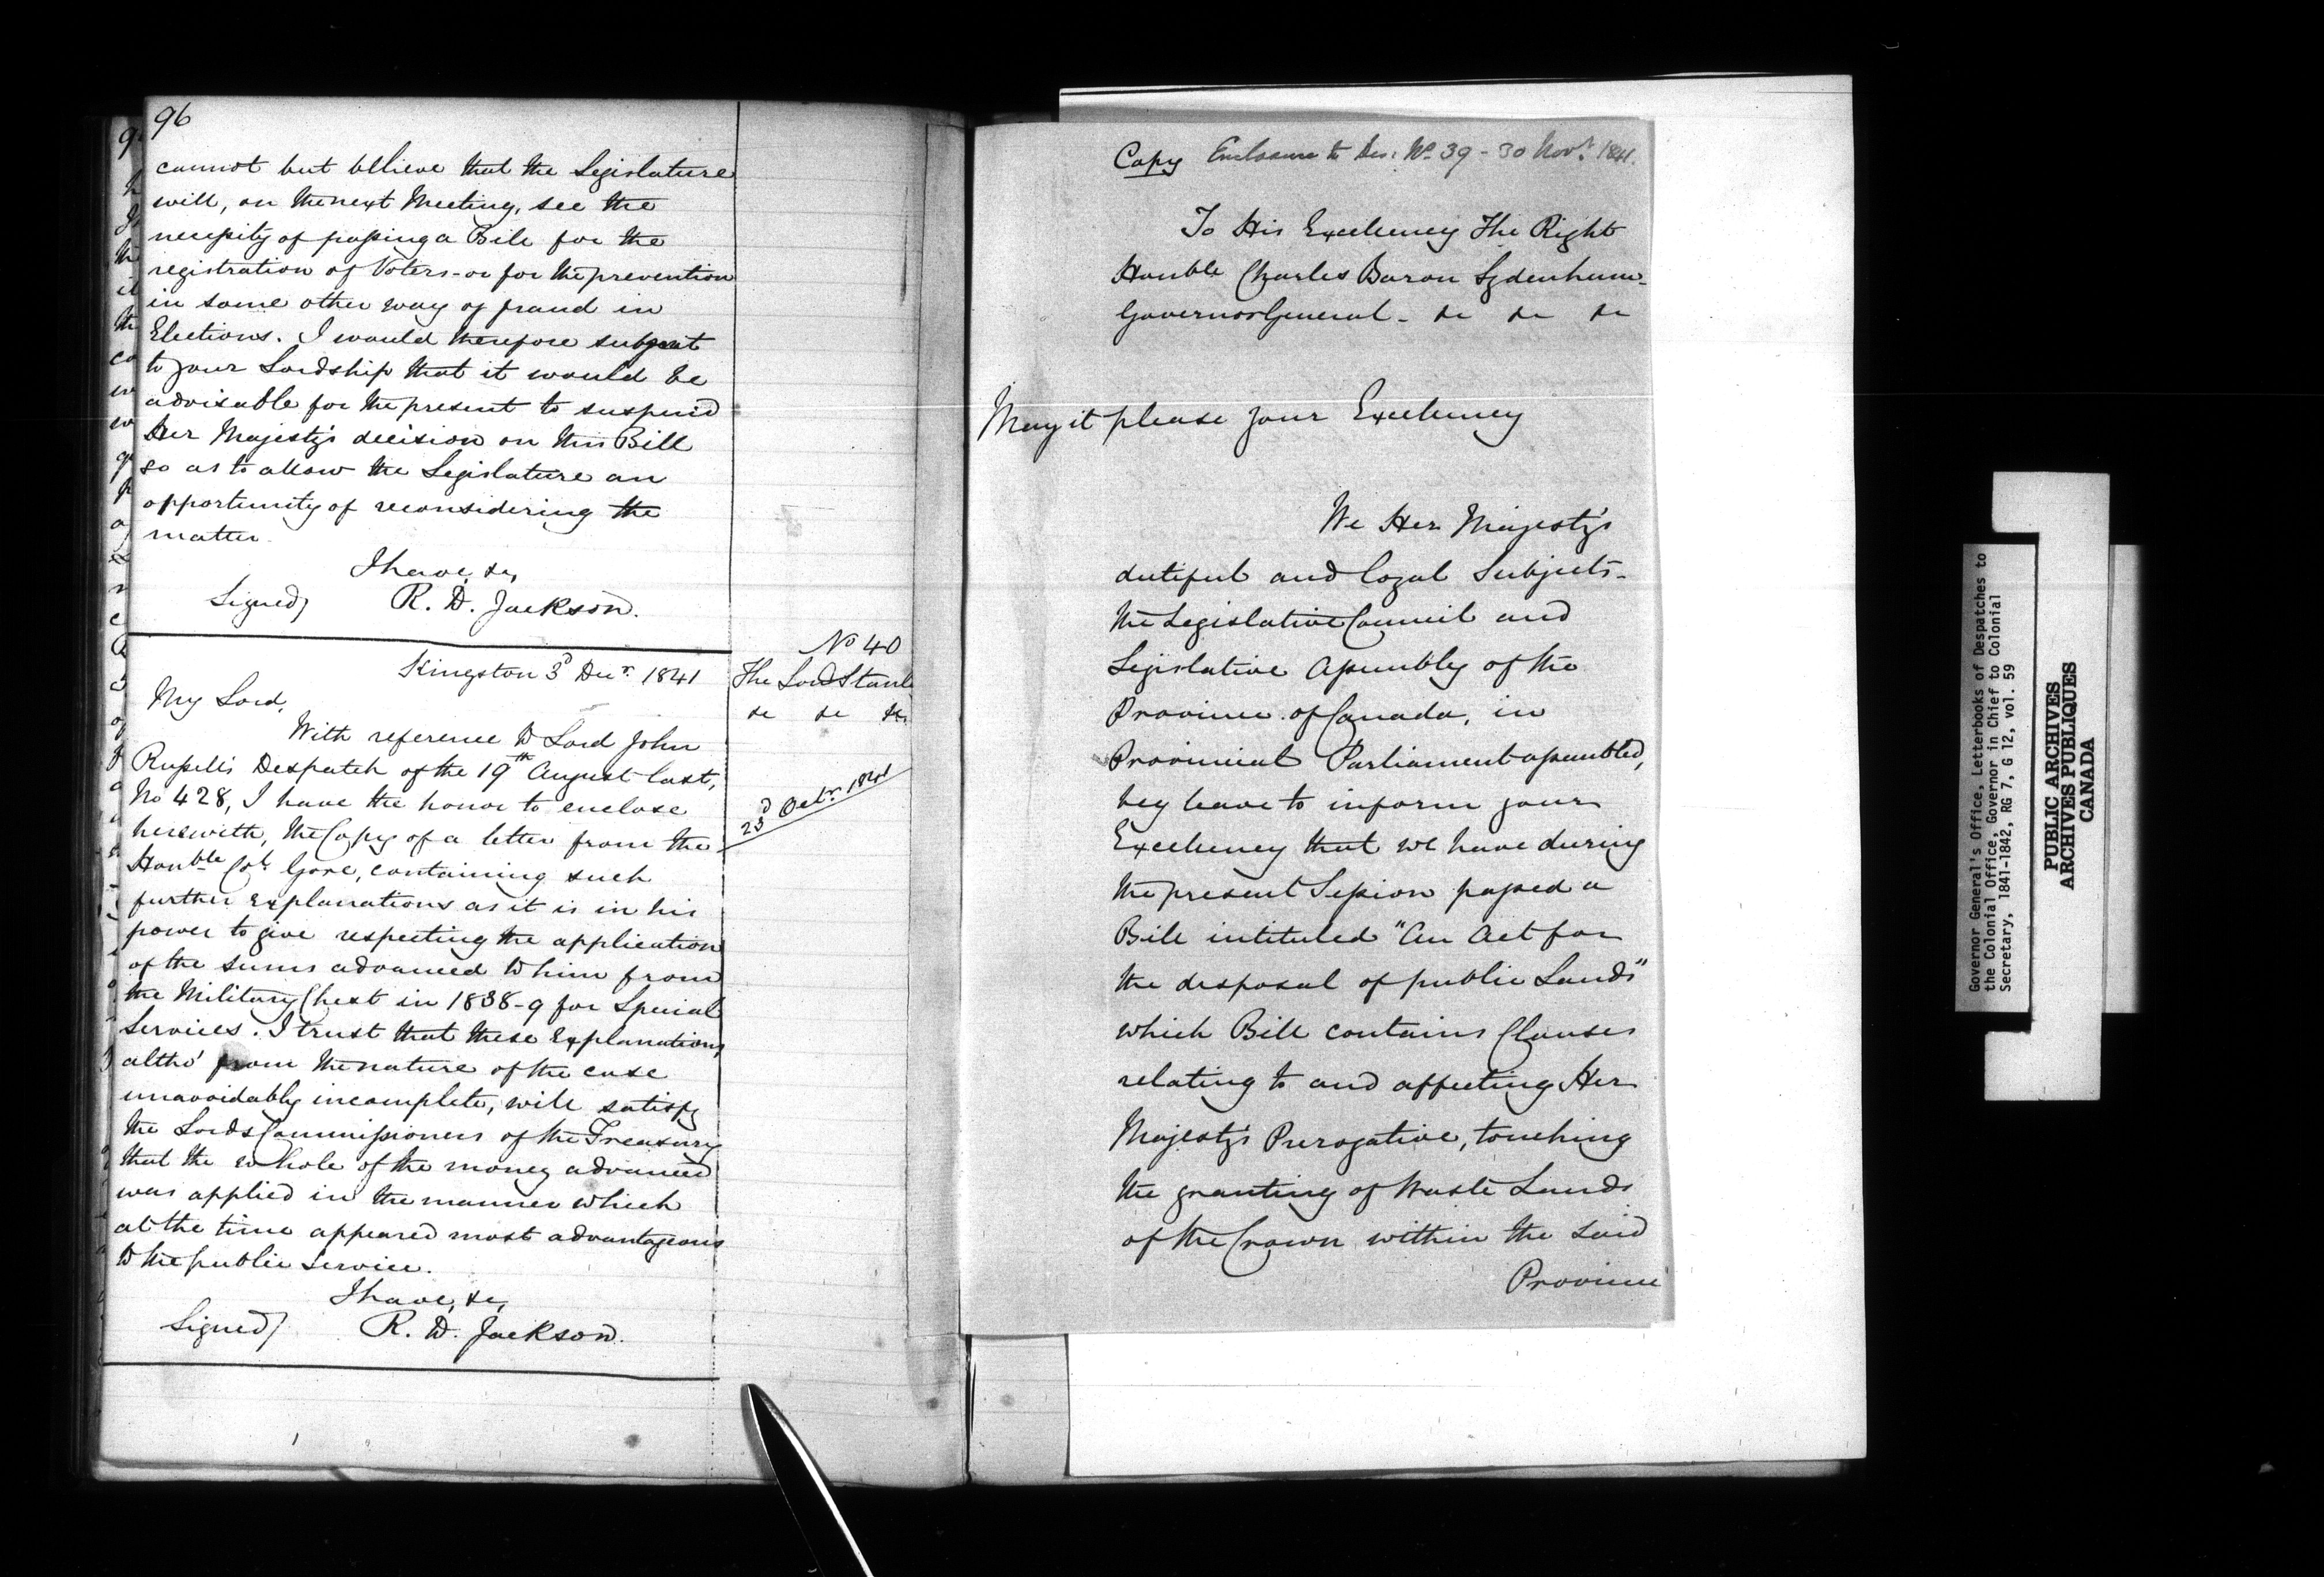 96
cannot but believe that the Legislature
will, on the next Meeting, see the
necessity of passing a Bill for the
registration of Voters - or for the prevention
in some other way of fraud in
Elections. I would therefore submit
to your Lordship that it would be
advisable for the present to suspend
Her Majesty's decision on this Bill
so as to allow the Legislature an
opportunity of reconsidering the
matter.
I have, &c,
Signed) R. D. Jackson.
No 40
The Lord Stanl
&c &c &c
Kingston 3d Decr. 1841
My Lord,
With reference to Lord John
Russell's Despatch of the 19th August last,
No 428, I have the honor to enclose
herewith, the Copy of a letter from the
23d Octr. 1841
Honble Col. Gore, containing such
further explanations as it is in his
power to give respecting the application
of the sums advanced to him from
the Military Chest in 1838-9 for Special
Services. I trust that these Explanations
altho' from the nature of the case
unavoidably incomplete, will satisfy
the Lords Commissioners of the Treasury
that the whole of the money advanced
was applied in the manner which
at the time appeared most advantageous
to the public Service.
I have, &c,
Signed) R. D. Jackson.
Copy Enclosure to Des: No 39 - 30 Novr. 1841.
To His Excellency The Right
Honble Charles Baron Sydenham -
Governor General - &c &c &c
May it please your Excellency
We Her Majesty's
dutiful and loyal Subjects -
the Legislative Council and
Legislative Assembly of the
Province of Canada, in
Provincial Parliament assembled,
beg leave to inform your
Excellency that we have during
the present Session passed a
Bill intituled "An Act for
the disposal of public Lands"
which Bill contains Clauses
relating to and affecting Her
Majesty's Prerogative, touching
the granting of Waste Lands
of the Crown within the said
Province
Governor General's Office, Letterbooks of Despatches to
the Colonial Office, Governor in Chief to Colonial
Secretary, 1841-1842, RG 7, G 12, vol. 59
PUBLIC ARCHIVES
ARCHIVES PUBLIQUES
CANADA